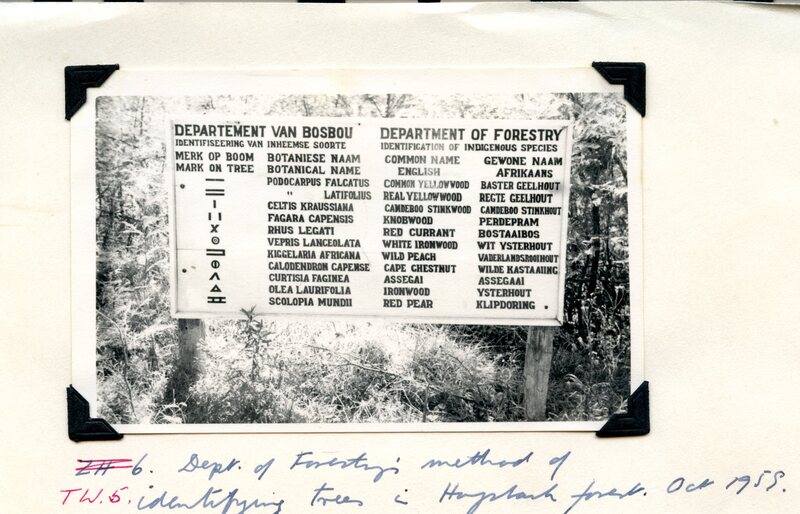 DEPARTEMENT VAN BOSBOU DEPARTMENT OF FORESTRY
IDENTIFISEERING VAN INHEEMSE SOORTE IDENTIFICATION OF INDIGENOUS SPECIES
MERK OP BOOM BOTANIESE NAAM COMMON NAME GEWONE NAAM
MARK ON TREE BOTANICAL NAME ENGLISH AFRIKAANS
PODOCARPUS FALCATUS COMMON YELLOWWOOD BASTER GEELHOUT
" LATIFOLIUS REAL YELLOWWOOD REGTE GEELHOUT
CELTIS KRAUSSIANA CAMDEBOO STINKWOOD CAMDEBOO STINKHOUT
FAGARA CAPENSIS KNOBWOOD PERDEPRAM
RHUS LEGATI RED CURRANT BOSTAAIBOS
VEPRIS LANCEOLATA WHITE IRONWOOD WIT YSTERHOUT
KIGGELARIA AFRICANA WILD PEACH VADERLANDSROOIHOUT
CALODENDRON CAPENSE CAPE CHESTNUT WILDE KASTAAIING
CURTISIA FAGINEA ASSEGAI ASSEGAAI
OLEA LAURIFOLIA IRONWOOD YSTERHOUT
SCOLOPIA MUNDII RED PEAR KLIPDORING
6. Dept. of Forestry's method of
T.W.5. identifying trees in forest. Oct 1955.